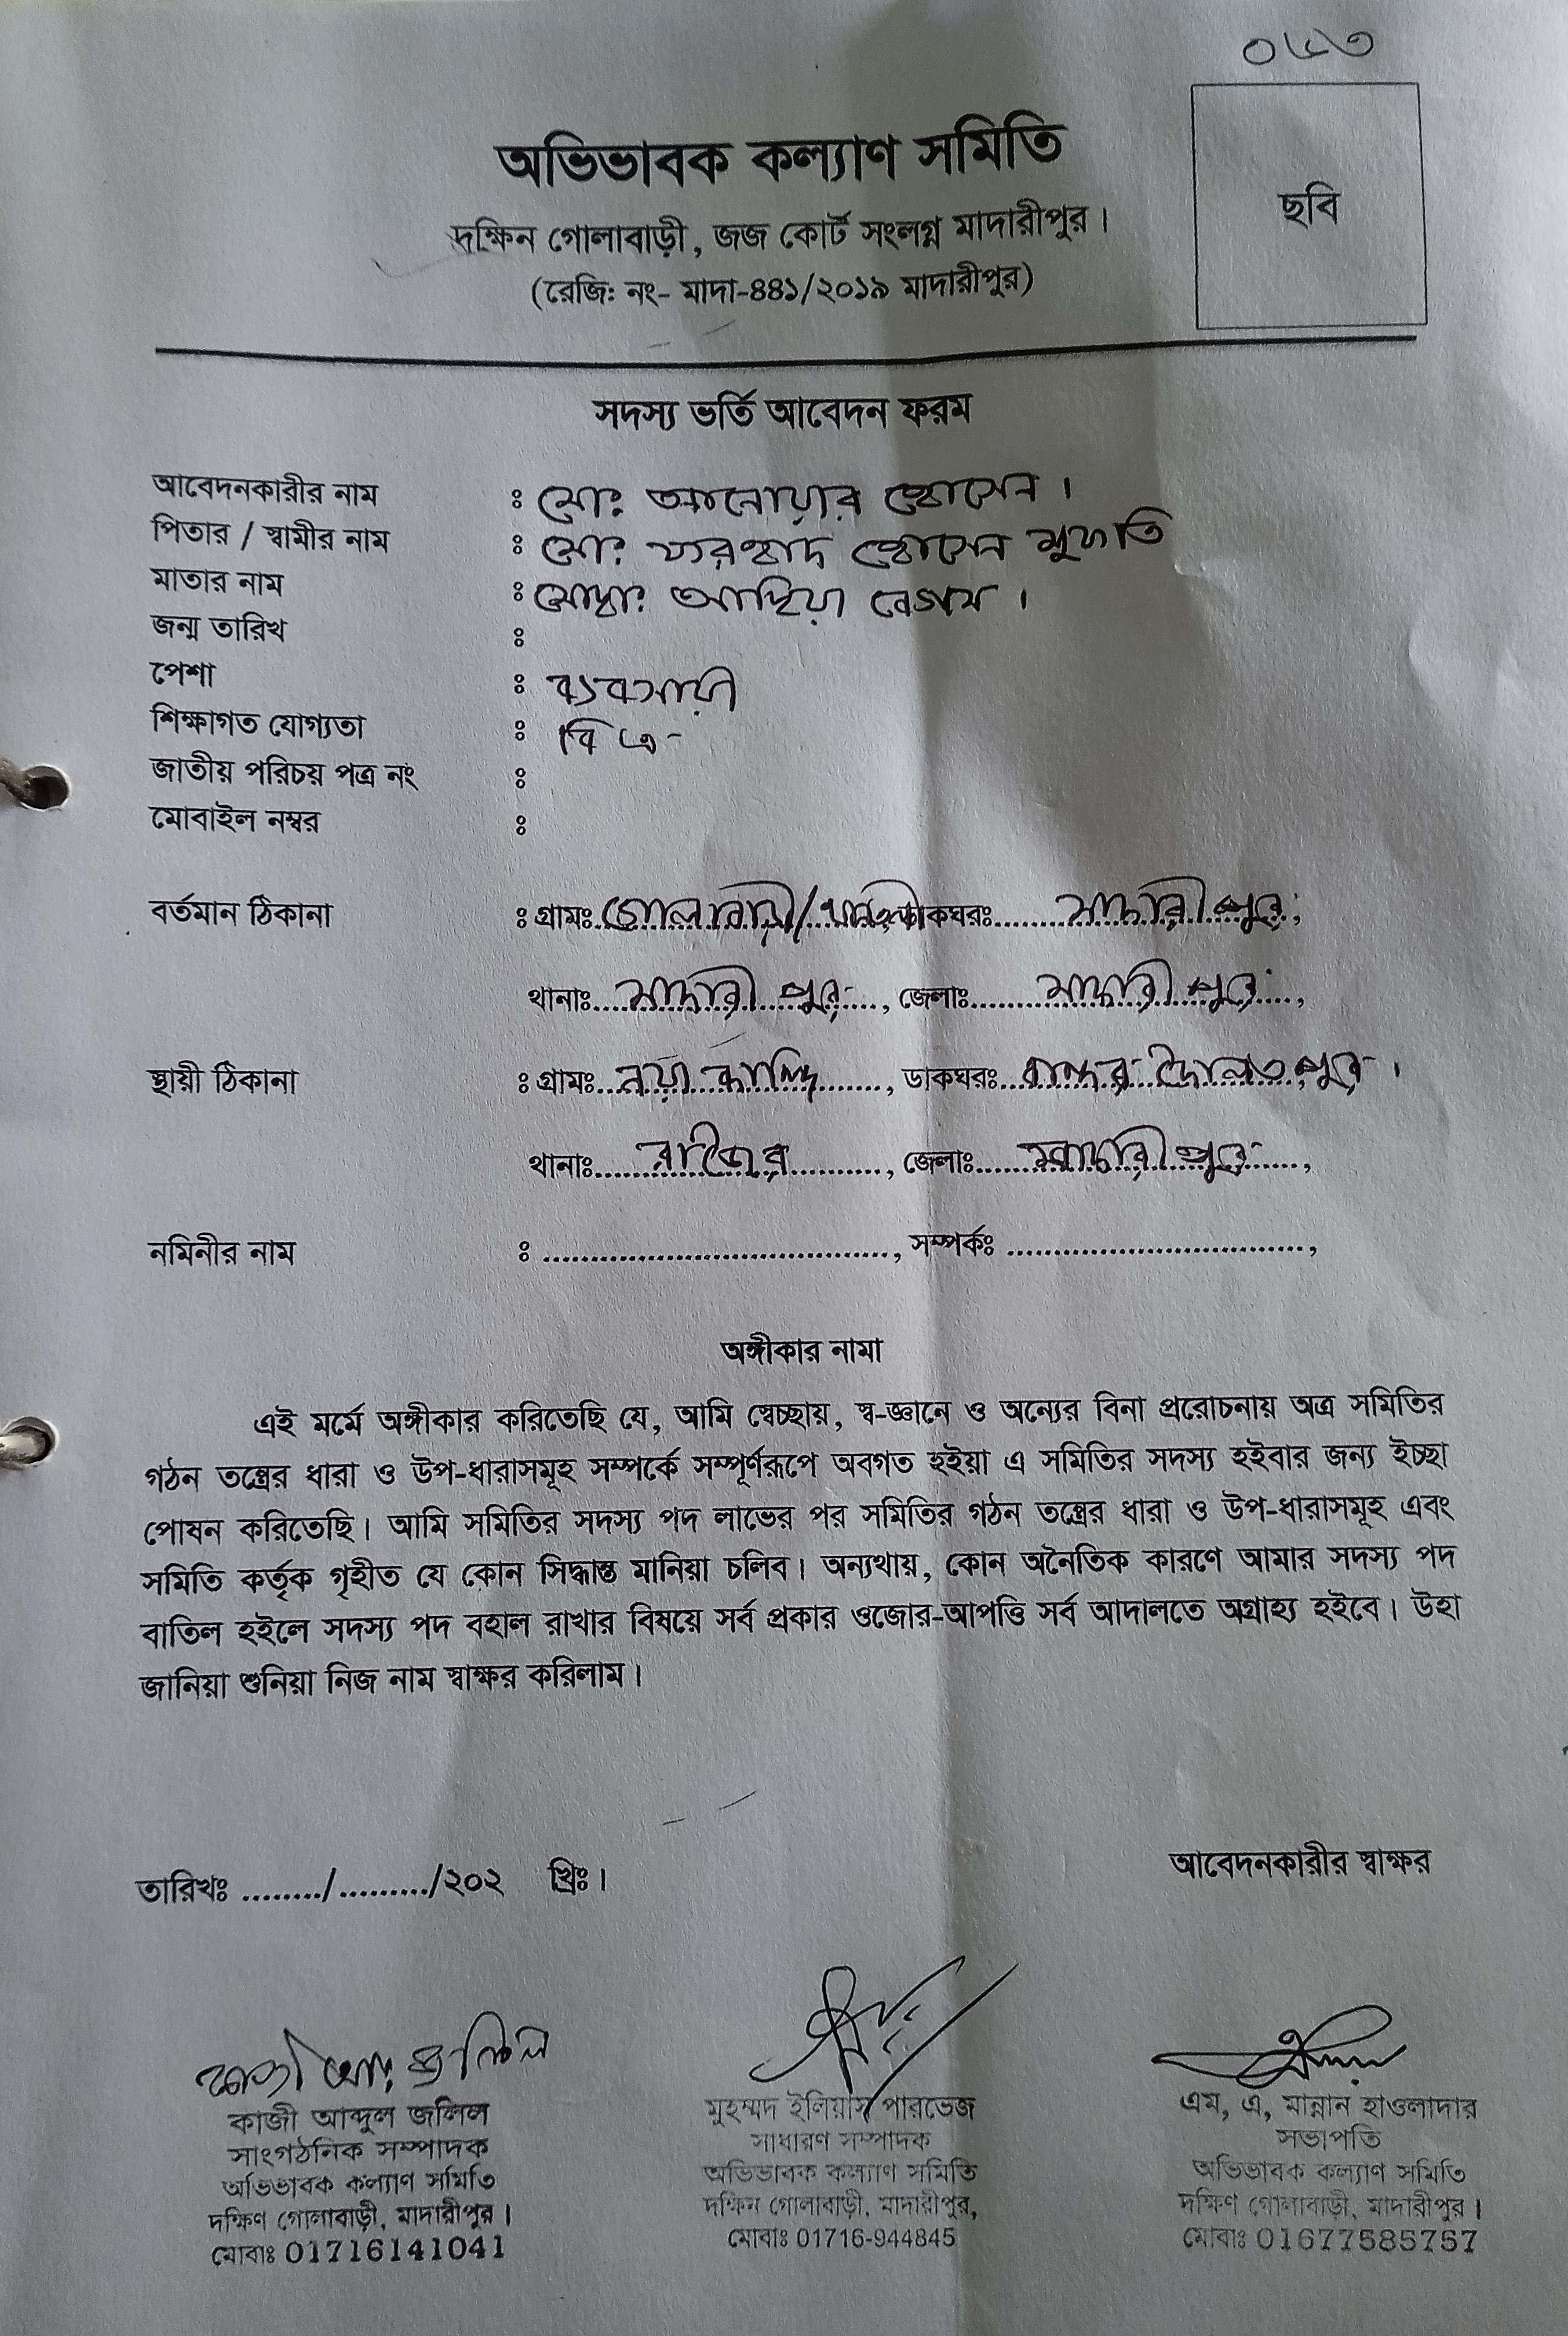 ০৬৩
ছবি
অভিভাবক কল্যাণ সমিতি
দক্ষিন গোলাবাড়ী, জজ কোর্ট সংলগ্ন মাদারীপুর।
(রেজি: নং- মাদা-৪৪১/২০১৯ মাদারীপুর)
সদস্য ভর্তি আবেদন ফরম
আবেদনকারীর নাম : মোঃ আনোয়ার হোসেন।
পিতার / স্বামীর নাম : মোঃ ফরহাদ হোসেন
মাতার নাম : মোছাঃ আছিয়া বেগম।
জন্ম তারিখ :
পেশা : ব্যবসায়ী
শিক্ষাগত যোগ্যতা : বি এ
জাতীয় পরিচয় পত্র নং :
মোবাইল নম্বর :
বর্তমান ঠিকানা : গ্রামঃ গোলাবাড়ী/ ডাকঘরঃ মাদারীপুর,
থানাঃ মাদারীপুর, জেলাঃ মাদারীপুর,
স্থায়ী ঠিকানা : গ্রামঃ নয়া কান্দি, ডাকঘরঃ দৌলতপুর।
থানাঃ রাজৈর, জেলাঃ মাদারীপুর,
নমিনীর নাম : ...................................., সম্পর্কঃ ................................,
অঙ্গীকার নামা
এই মর্মে অঙ্গীকার করিতেছি যে, আমি স্বেচ্ছায়, স্ব-জ্ঞানে ও অন্যের বিনা প্ররোচনায় অত্র সমিতির
গঠন তন্ত্রের ধারা ও উপ-ধারাসমূহ সম্পর্কে সম্পূর্ণরূপে অবগত হইয়া এ সমিতির সদস্য হইবার জন্য ইচ্ছা
পোষন করিতেছি। আমি সমিতির সদস্য পদ লাভের পর সমিতির গঠন তন্ত্রের ধারা ও উপ-ধারাসমূহ এবং
সমিতি কর্তৃক গৃহীত যে কোন সিদ্ধান্ত মানিয়া চলিব। অন্যথায়, কোন অনৈতিক কারণে আমার সদস্য পদ
বাতিল হইলে সদস্য পদ বহাল রাখার বিষয়ে সর্ব প্রকার ওজোর-আপত্তি সর্ব আদালতে অগ্রাহ্য হইবে। উহা
জানিয়া শুনিয়া নিজ নাম স্বাক্ষর করিলাম।
আবেদনকারীর স্বাক্ষর
তারিখঃ ......../........./২০২ খ্রিঃ।
কাজী আঃ জলিল
কাজী আব্দুল জলিল
সাংগঠনিক সম্পাদক
অভিভাবক কল্যাণ সমিতি
দক্ষিণ গোলাবাড়ী, মাদারীপুর।
মোবাঃ 01716141041
মুহম্মদ ইলিয়াস পারভেজ
সাধারণ সম্পাদক
অভিভাবক কল্যাণ সমিতি
দক্ষিন গোলাবাড়ী, মাদারীপুর,
মোবাঃ 01716-944845
এম, এ, মান্নান হাওলাদার
সভাপতি
অভিভাবক কল্যাণ সমিতি
দক্ষিণ গোলাবাড়ী, মাদারীপুর।
মোবাঃ 01677585757